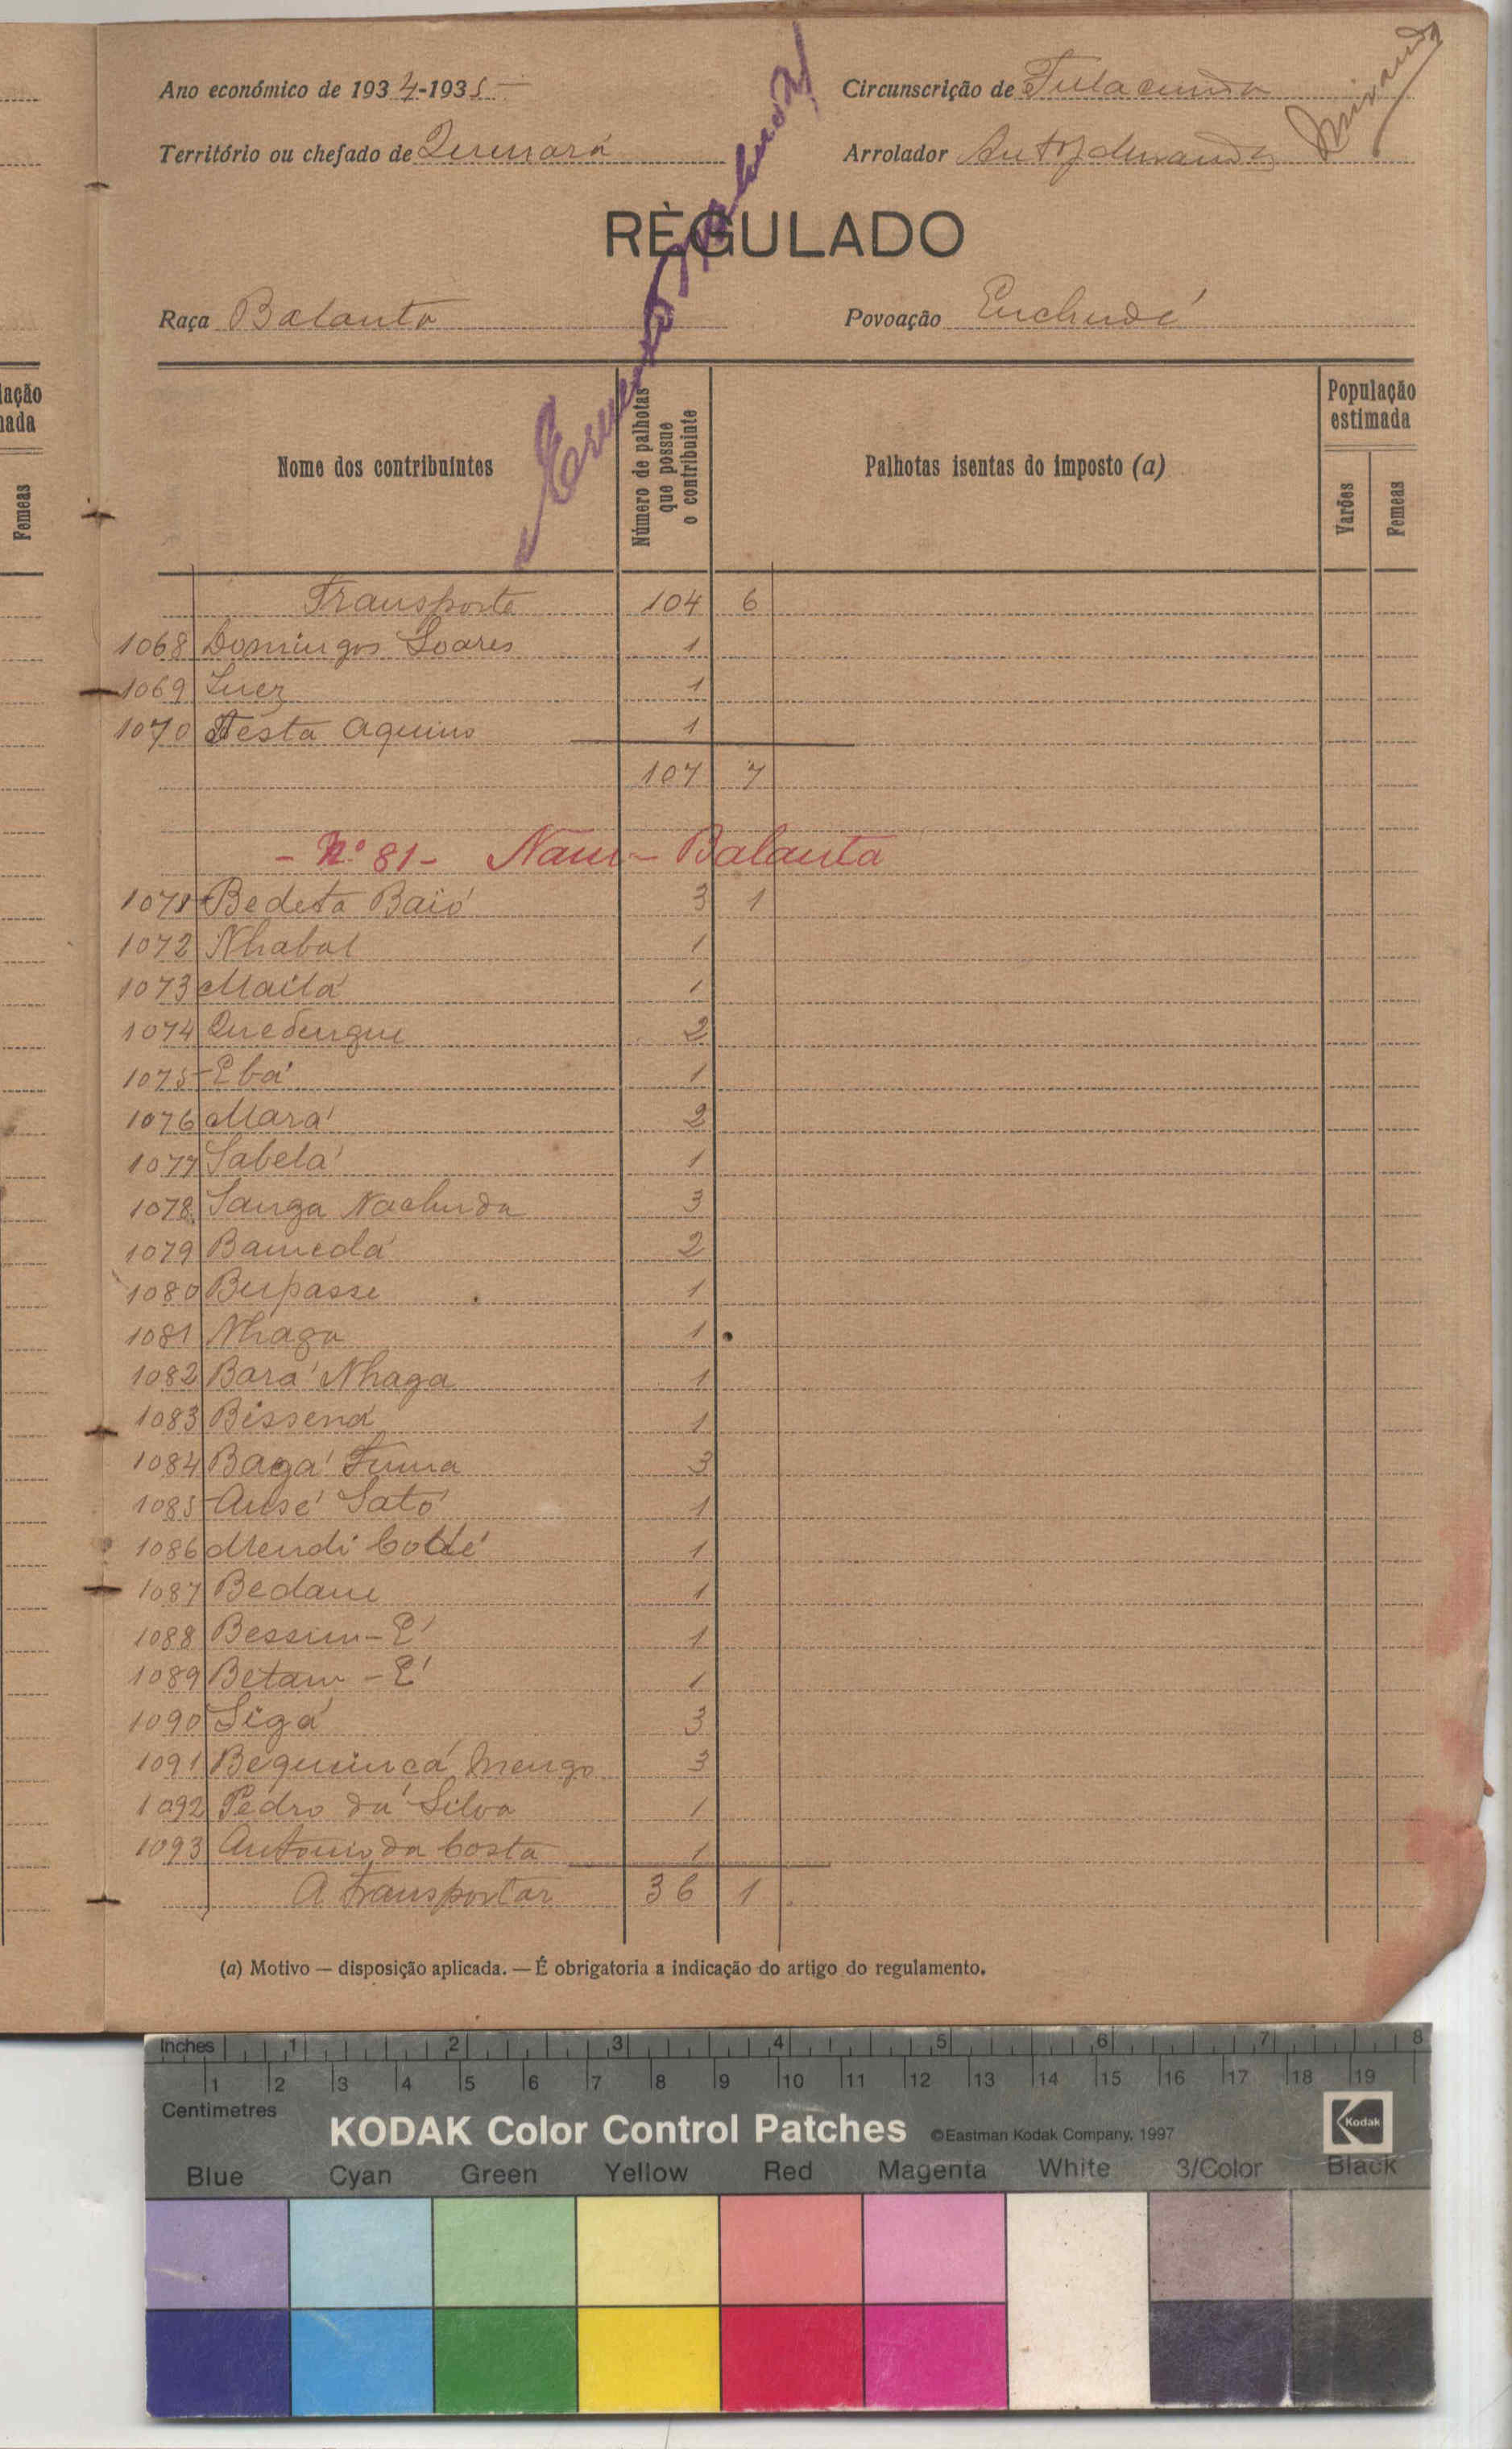 Ano económico de 1934-1935
Circunscrição de Fulacunda
Território ou chefado de Quinará
Arrolador
RÈGULADO
Raça Balanta
Povoação Enchudé
lação
nada
Femeas
Nome dos contribuintes
Número de palhotas
que possue
o contribuinte
Palhotas isentas do imposto (a)
População
estimada
Varões
Femeas
Transporte 104 6
1068 Domingos Soares 1
1069 Inez 1
1070 Testa Aquino 1
107 7
- Nº 81 - Nam - Balanta
1071 Bedeta Baió 3 1
1072 Nhabal 1
1073 Mailá 1
1074 Quedengue 2
1075 Ebá 1
1076 Mará 2
1077 Sabelá 1
1078 Sanga Nachuda 3
1079 Bamedá 2
1080 Bupasse 1
1081 Nhaga 1
1082 Bará Nhaga 1
1083 Bissená 1
1084 Bagá Fuma 3
1085 Ansé Sató 1
1086 Mendi 1
1087 Bedam 1
1088 Bessim-É 1
1089 Betam-É 1
1090 Sigá 3
1091 Bequincá 3
1092 Pedro da Silva 1
1093 Antonio da Costa 1
A transportar 36 1
(a) Motivo — disposição aplicada. — É obrigatoria a indicação do artigo do regulamento.
Inches 1 2 3 4 5 6 7 8
1 2 3 4 5 6 7 8 9 10 11 12 13 14 15 16 17 18 19
Centimetres
KODAK Color Control Patches ©Eastman Kodak Company, 1997 Kodak
Blue Cyan Green Yellow Red Magenta White 3/Color Black